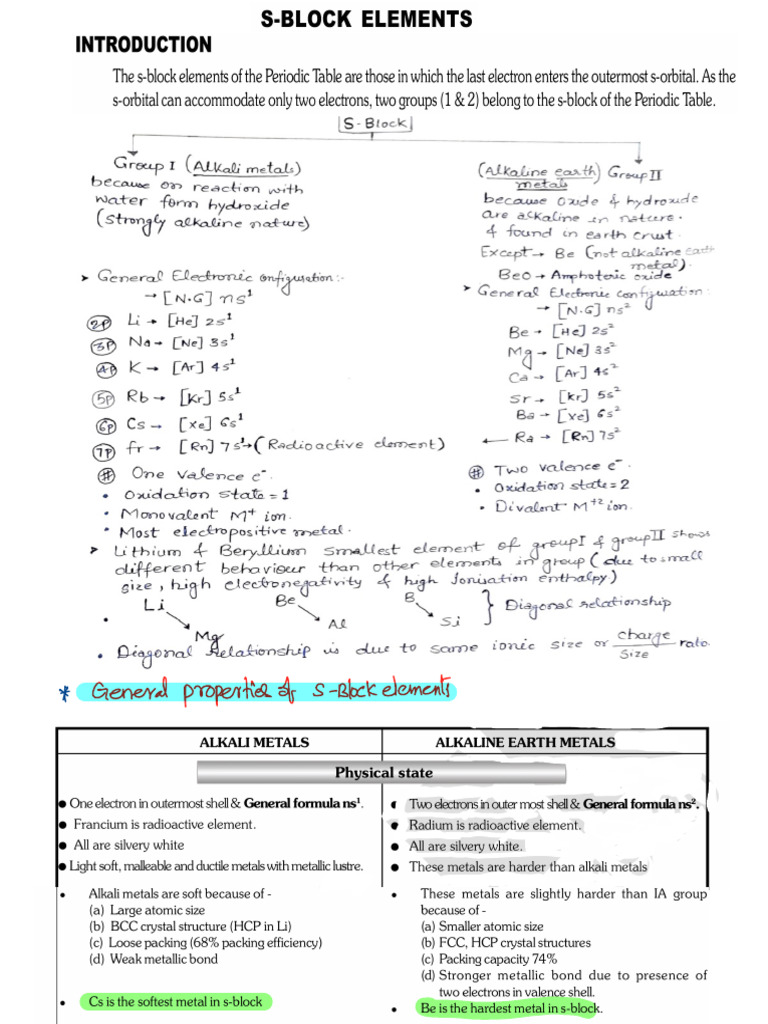 S-BLOCK ELEMENTS
INTRODUCTION
The s-block elements of the Periodic Table are those in which the last electron enters the outermost s-orbital. As the
s-orbital can accommodate only two electrons, two groups (1 & 2) belong to the s-block of the Periodic Table.
S-Block
Group I (Alkali metals)
because on reaction with
water form hydroxide
(strongly alkaline nature)
➤ General Electronic Configuration:-
→ [N.G] ns¹
2p Li → [He] 2s¹
3p Na → [Ne] 3s¹
4p K → [Ar] 4s¹
5p Rb → [Kr] 5s¹
6p Cs → [Xe] 6s¹
7p fr → [Rn] 7s¹ → (Radioactive element)
# One valence e⁻.
• Oxidation state = 1
• Monovalent M⁺ ion.
• Most electropositive metal.
(Alkaline earth) Group II
metals
because oxide & hydroxide
are alkaline in nature.
& found in earth crust.
Except → Be (not alkaline earth
metal).
BeO → Amphoteric oxide
➤ General Electronic configuration:
→ [N.G] ns²
Be → [He] 2s²
Mg → [Ne] 3s²
Ca → [Ar] 4s²
Sr → [Kr] 5s²
Ba → [Xe] 6s²
← Ra → [Rn] 7s²
# Two valence e⁻.
• Oxidation state = 2
• Divalent M⁺² ion.
➤ Lithium & Beryllium smallest element of group I & group II shows
different behaviour than other elements in group (due to small
size, high electronegativity & high Ionisation enthalpy)
Li Be B } Diagonal relationship
• Mg Al Si
• Diagonal Relationship is due to same ionic size or charge/size ratio.
* General properties of S-Block elements
ALKALI METALS ALKALINE EARTH METALS
Physical state
● One electron in outermost shell & General formula ns¹.
● Francium is radioactive element.
● All are silvery white
● Light soft, malleable and ductile metals with metallic lustre.
• Alkali metals are soft because of -
(a) Large atomic size
(b) BCC crystal structure (HCP in Li)
(c) Loose packing (68% packing efficiency)
(d) Weak metallic bond
• Cs is the softest metal in s-block
● Two electrons in outer most shell & General formula ns².
● Radium is radioactive element.
● All are silvery white.
● These metals are harder than alkali metals
• These metals are slightly harder than IA group
because of -
(a) Smaller atomic size
(b) FCC, HCP crystal structures
(c) Packing capacity 74%
(d) Stronger metallic bond due to presence of
two electrons in valence shell.
• Be is the hardest metal in s-block.